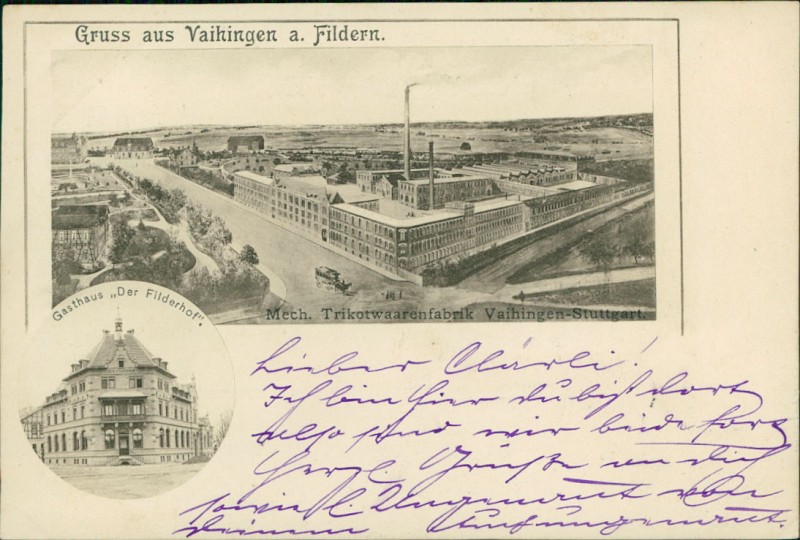 Gruss aus Vaihingen a. Fildern.
Mech. Trikotwaarenfabrik Vaihingen-Stuttgart.
Gasthaus „Der Filderhof".
Lieber Clärli!
Ich bin hier du bist dort
also sind wir beide fort
Herzl. Grüße an dich
sowie l. von
deinem